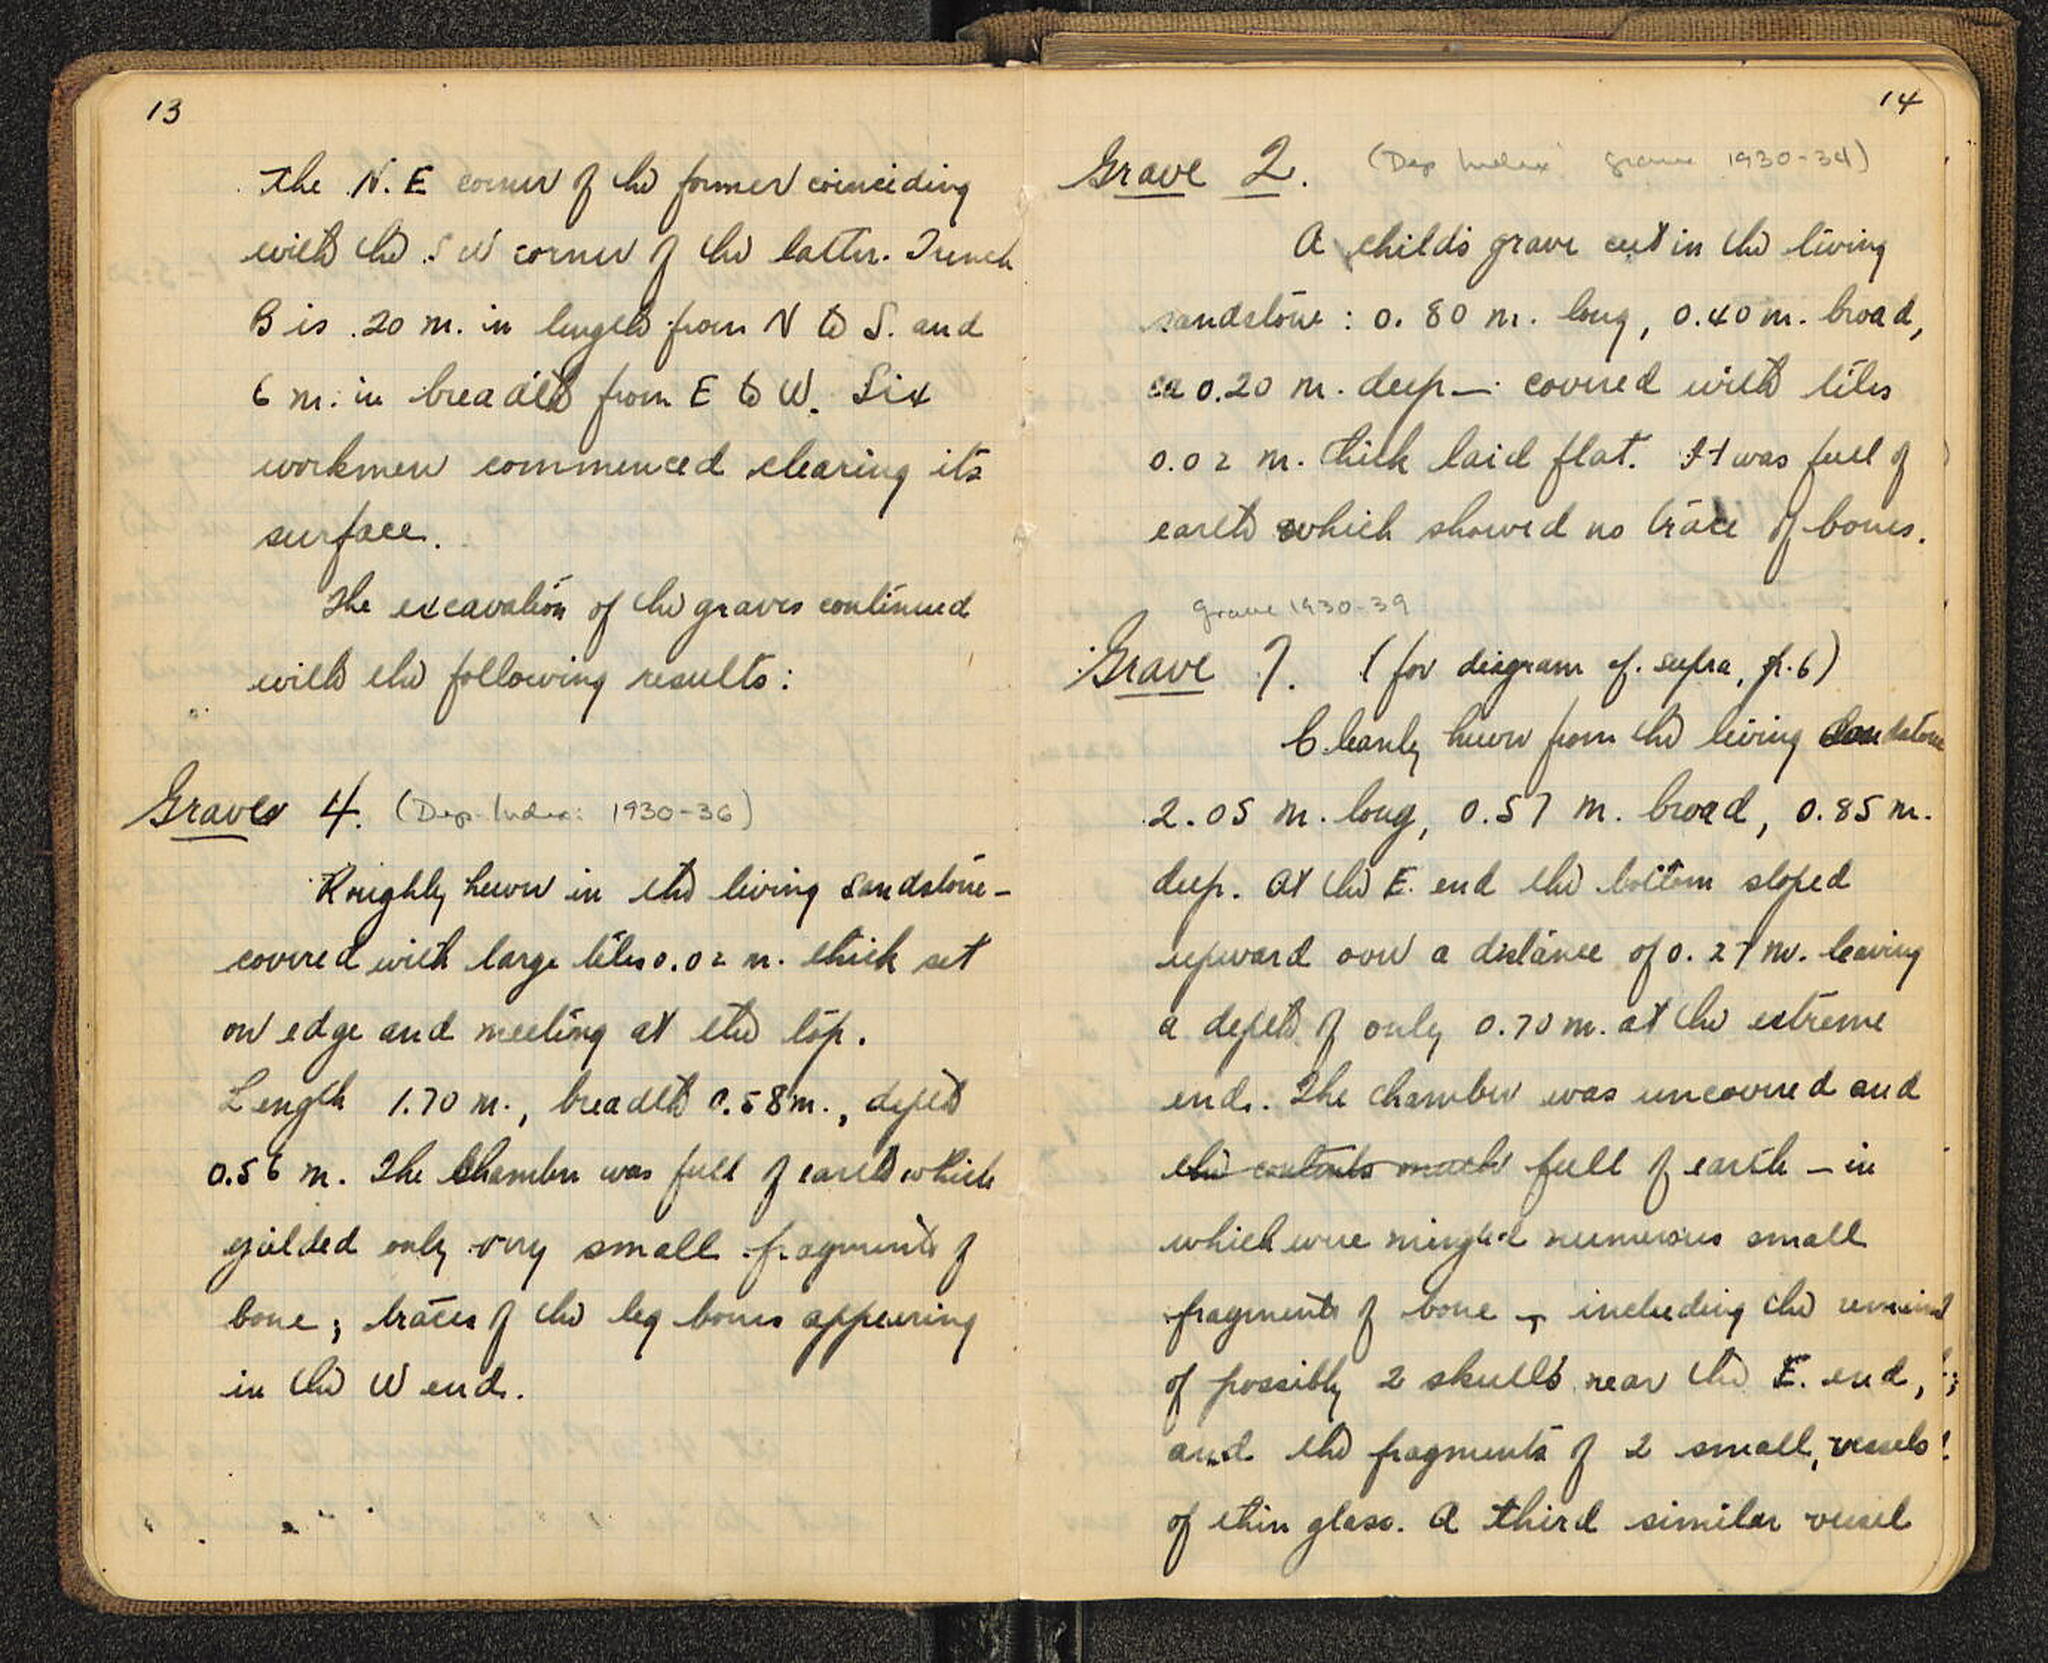 13
the N.E corner of the former coinciding
with the S W corner of the latter. Trench
B is 20 m. in length from N to S. and
6 m. in breadth from E to W. Six
workmen commenced clearing its
surface.
The excavation of the graves continued
with the following results:
Grave 4. (Dep. Index: 1930-36)
Roughly hewn in the living sandstone -
covered with large tiles 0.02 m. thick set
on edge and meeting at the top.
Length 1.70 m., breadth 0.58 m., depth
0.56 m. The chamber was full of earth which
yielded only very small fragments of
bone; traces of the leg bones appearing
in the W end.
14
Grave 2. (Dep Index grave 1930-34)
A child's grave cut in the living
sandstone: 0.80 m. long, 0.40 m. broad,
ca 0.20 m. deep - covered with tiles
0.02 m. thick laid flat. It was full of
earth which showed no trace of bones.
grave 1930-39
Grave 7. (for diagram cf. supra, p. 6)
Cleanly hewn from the living sandstone
2.05 m. long, 0.57 m. broad, 0.85 m.
deep. At the E. end the bottom sloped
upward over a distance of 0.27 m. leaving
a depth of only 0.70 m. at the extreme
end. The chamber was uncovered and
the contents much full of earth - in
which were mingled numerous small
fragments of bone, including the remains
of possibly 2 skulls near the E. end,
and the fragments of 2 small, vessels
of thin glass. A third similar vessel